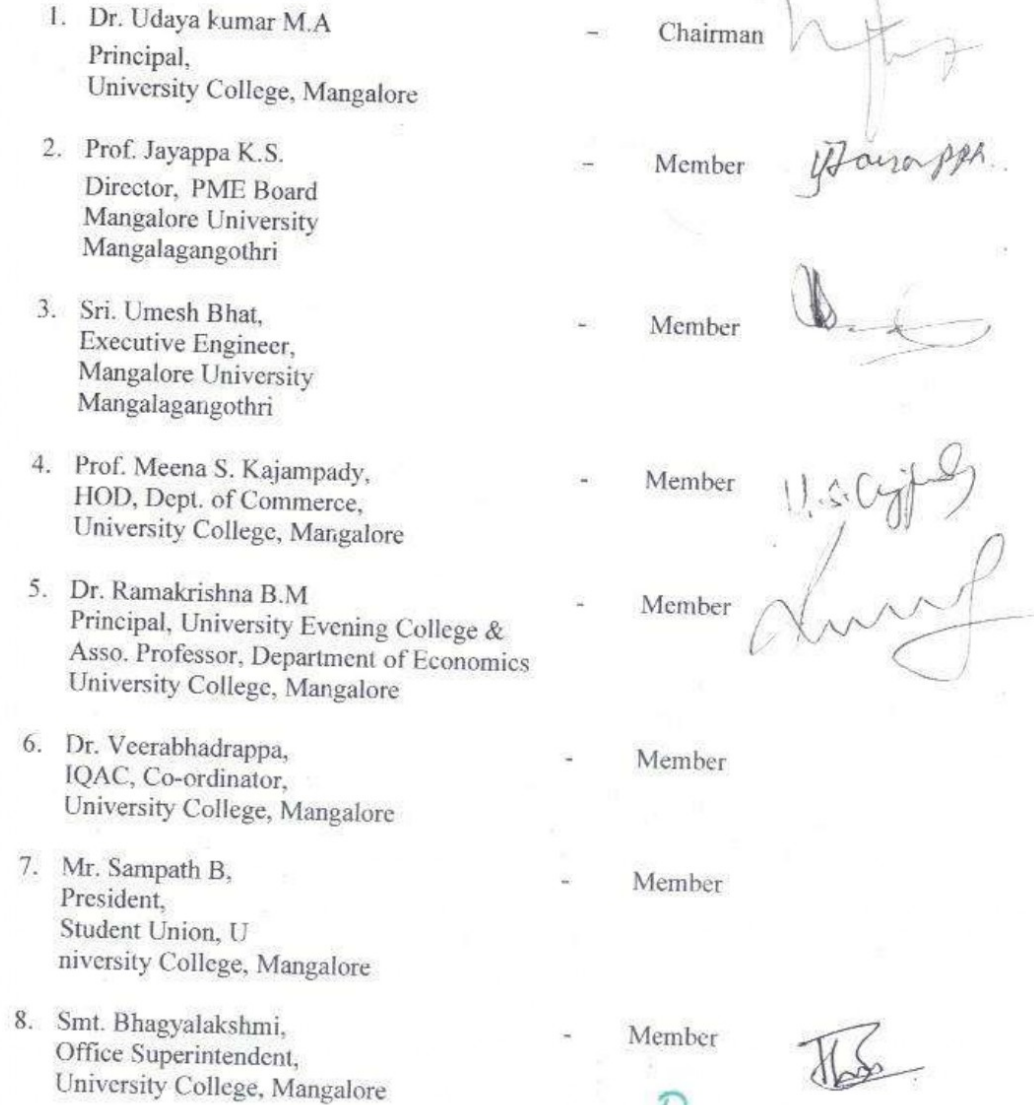 1. Dr. Udaya kumar M.A - Chairman
Principal,
University College, Mangalore
2. Prof. Jayappa K.S. - Member
Director, PME Board
Mangalore University
Mangalagangothri
3. Sri. Umesh Bhat, - Member
Executive Engineer,
Mangalore University
Mangalagangothri
4. Prof. Meena S. Kajampady, - Member
HOD, Dept. of Commerce,
University College, Mangalore
5. Dr. Ramakrishna B.M - Member
Principal, University Evening College &
Asso. Professor, Department of Economics
University College, Mangalore
6. Dr. Veerabhadrappa, - Member
IQAC, Co-ordinator,
University College, Mangalore
7. Mr. Sampath B, - Member
President,
Student Union, U
niversity College, Mangalore
8. Smt. Bhagyalakshmi, - Member
Office Superintendent,
University College, Mangalore